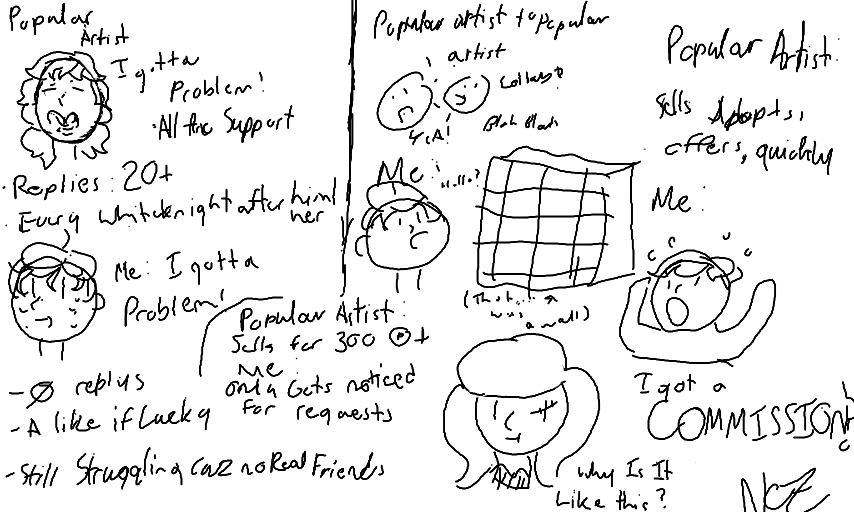 Popular
Artist
I gotta
Problem!
•All the Support
•Replies: 20+
Every whiteknight after him/
her
Me: I gotta
Problem!
- Ø replys
- A like if Lucky
- Still Struggling cuz no Real Friends
Popular Artist:
Sells for 300
+
Me:
only Gets noticed
For requests
Popular artist to popular
artist
Collab?
YEA!
Blah Blah
Me:
Hello?
(That
was
a wall)
Why Is It
Like this?
Popular Artist:
Sells Adopts,
offers, quickly
Me:
I got a
COMMISSION!